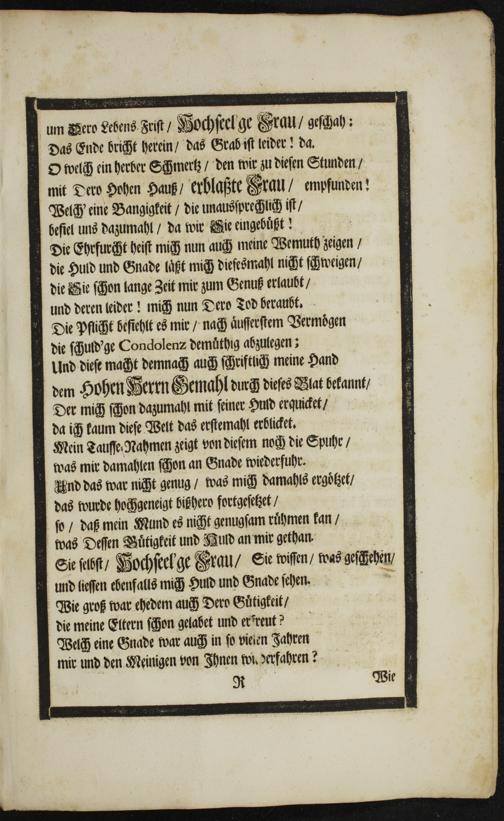 um Dero Lebens Frist / Hochseel'ge Frau / geschah :
Das Ende bricht herein / das Grab ist leider ! da.
O welch ein herber Schmertz / den wir zu diesen Stunden /
mit Dero Hohen Hauß / erblaßte Frau / empfunden !
Welch' eine Bangigkeit / die unaussprechlich ist /
befiel uns dazumahl / da wir Sie eingebüßt !
Die Ehrfurcht heist mich nun auch meine Wemuth zeigen /
die Huld und Gnade läßt mich diesesmahl nicht schweigen /
die Sie schon lange Zeit mir zum Genuß erlaubt /
und deren leider ! mich nun Dero Tod beraubt.
Die Pflicht befiehlt es mir / nach äusserstem Vermögen
die schuld'ge Condolenz demüthig abzulegen ;
Und diese macht demnach auch schriftlich meine Hand
dem Hohen Herrn Gemahl durch dieses Blat bekannt /
Der mich schon dazumahl mit seiner Huld erquicket /
da ich kaum diese Welt das erstemahl erblicket.
Mein Tauffe-Nahmen zeigt von diesem noch die Spuhr /
was mir damahlen schon an Gnade wiederfuhr.
Und das war nicht genug / was mich damahls ergötzet /
das wurde hochgeneigt bißhero fortgesetzet /
so / daß mein Mund es nicht genugsam rühmen kan /
was Dessen Gütigkeit und Huld an mir gethan.
Sie selbst / Hochseel'ge Frau / Sie wissen / was geschehen /
und liessen ebenfalls mich Huld und Gnade sehen.
Wie groß war ehedem auch Dero Gütigkeit /
die meine Eltern schon gelabet und erfreut ?
Welch eine Gnade war auch in so vielen Jahren
mir und den Meinigen von Ihnen wiederfahren ?
R Wie